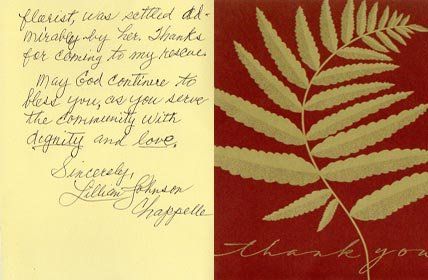 florist, was settled ad-
mirably by her. Thanks
for coming to my rescue.
May God continue to
bless you, as you serve
the community with
dignity and love.
Sincerely,
Lillian Johnson
Chappelle
thank you